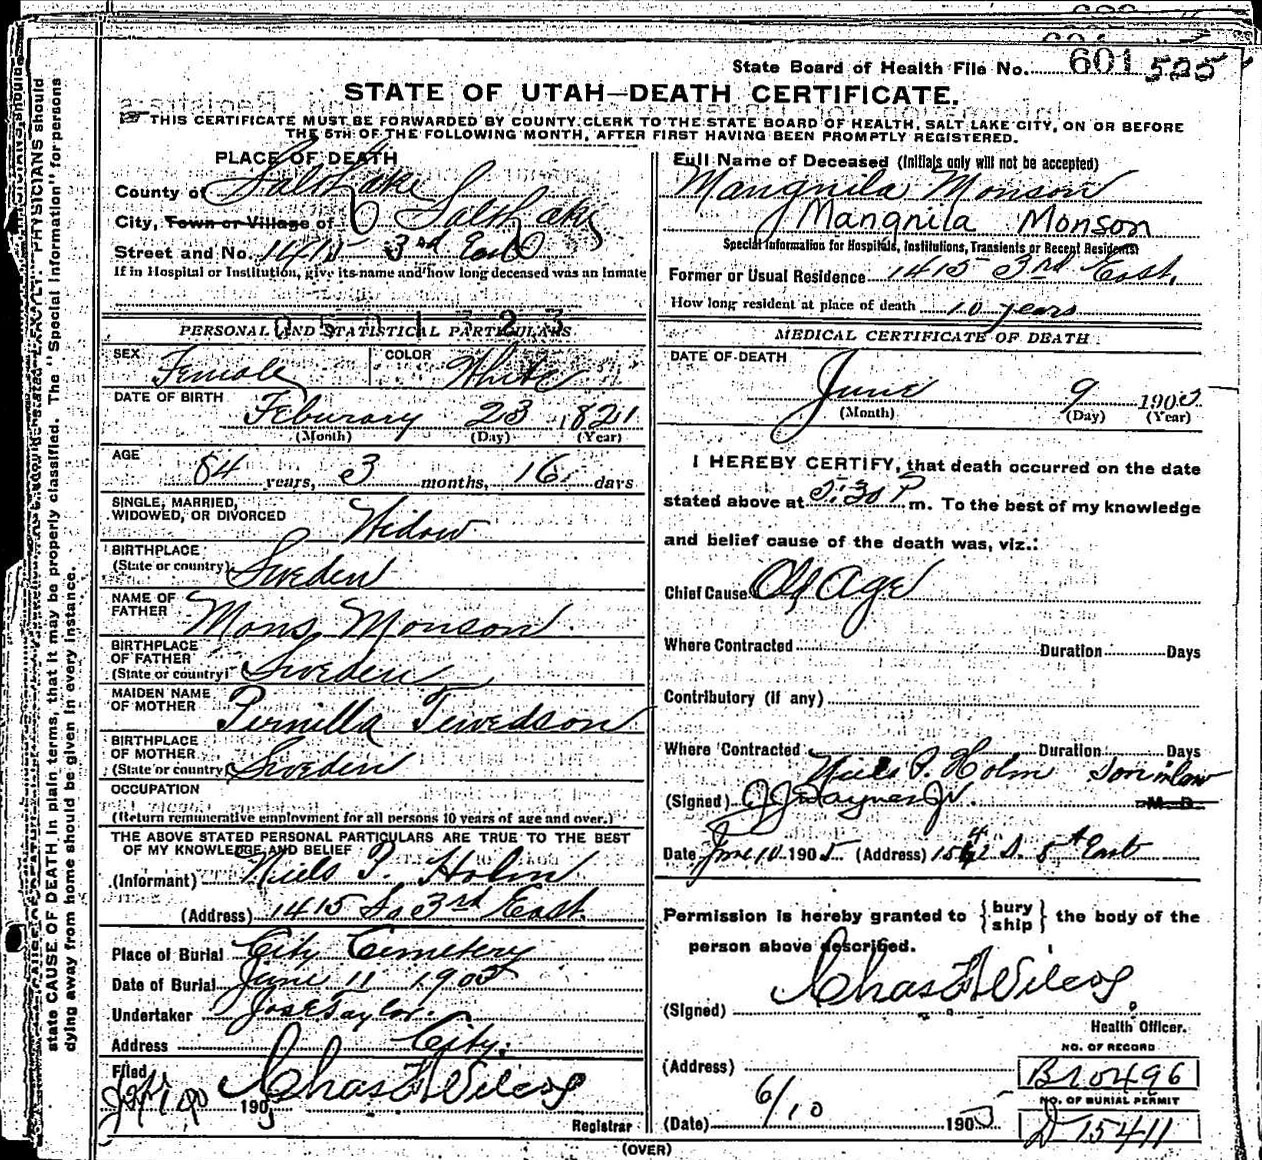 State Board of Health File No. 601 525
STATE OF UTAH—DEATH CERTIFICATE.
THIS CERTIFICATE MUST BE FORWARDED BY COUNTY CLERK TO THE STATE BOARD OF HEALTH, SALT LAKE CITY, ON OR BEFORE
THE 5TH OF THE FOLLOWING MONTH, AFTER FIRST HAVING BEEN PROMPTLY REGISTERED.
PLACE OF DEATH
County of Salt Lake
City, Town or Village of Salt Lake
Street and No. 1415 3rd East
If in Hospital or Institution, give its name and how long deceased was an Inmate
PERSONAL AND STATISTICAL PARTICULARS
SEX Female COLOR White
DATE OF BIRTH Feburary 23 1821
(Month) (Day) (Year)
AGE 84 years, 3 months, 16 days
SINGLE, MARRIED,
WIDOWED, OR DIVORCED Widow
BIRTHPLACE
(State or country) Sweden
NAME OF
FATHER Mons Monson
BIRTHPLACE
OF FATHER
(State or country) Sweden
MAIDEN NAME
OF MOTHER Pernilla Tewedson
BIRTHPLACE
OF MOTHER
(State or country) Sweden
OCCUPATION
(Return remunerative employment for all persons 10 years of age and over.)
THE ABOVE STATED PERSONAL PARTICULARS ARE TRUE TO THE BEST
OF MY KNOWLEDGE AND BELIEF
(Informant) Niels P. Holm
(Address) 1415 So 3rd East.
Place of Burial City Cemetery
Date of Burial June 11 1905
Undertaker Jos E Taylor.
Address City.
Filed
190 Chas F Wilcox
Registrar
(OVER)
Full Name of Deceased (Initials only will not be accepted)
Mangnila Monson
Mangnila Monson
Special Information for Hospitals, Institutions, Transients or Recent Residents
Former or Usual Residence 1415 3rd East,
How long resident at place of death 10 years
MEDICAL CERTIFICATE OF DEATH
DATE OF DEATH
June 9 1905
(Month) (Day) (Year)
I HEREBY CERTIFY, that death occurred on the date
stated above at 5:30 P m. To the best of my knowledge
and belief cause of the death was, viz.:
Chief Cause Old Age
Where Contracted Duration Days
Contributory (if any)
Where Contracted Duration Days
Niels P. Holm Son in law
(Signed) M. D.
Date June 10 1905 (Address) S. 5th East
Permission is hereby granted to { bury
ship } the body of the
person above described.
(Signed) Chas F Wilcox
Health Officer.
(Address)
(Date) 6/10 1905
NO. OF RECORD
B10496
NO. OF BURIAL PERMIT
D 15411
state CAUSE OF DEATH in plain terms, that it may be properly classified. The "Special Information" for persons
dying away from home should be given in every instance.